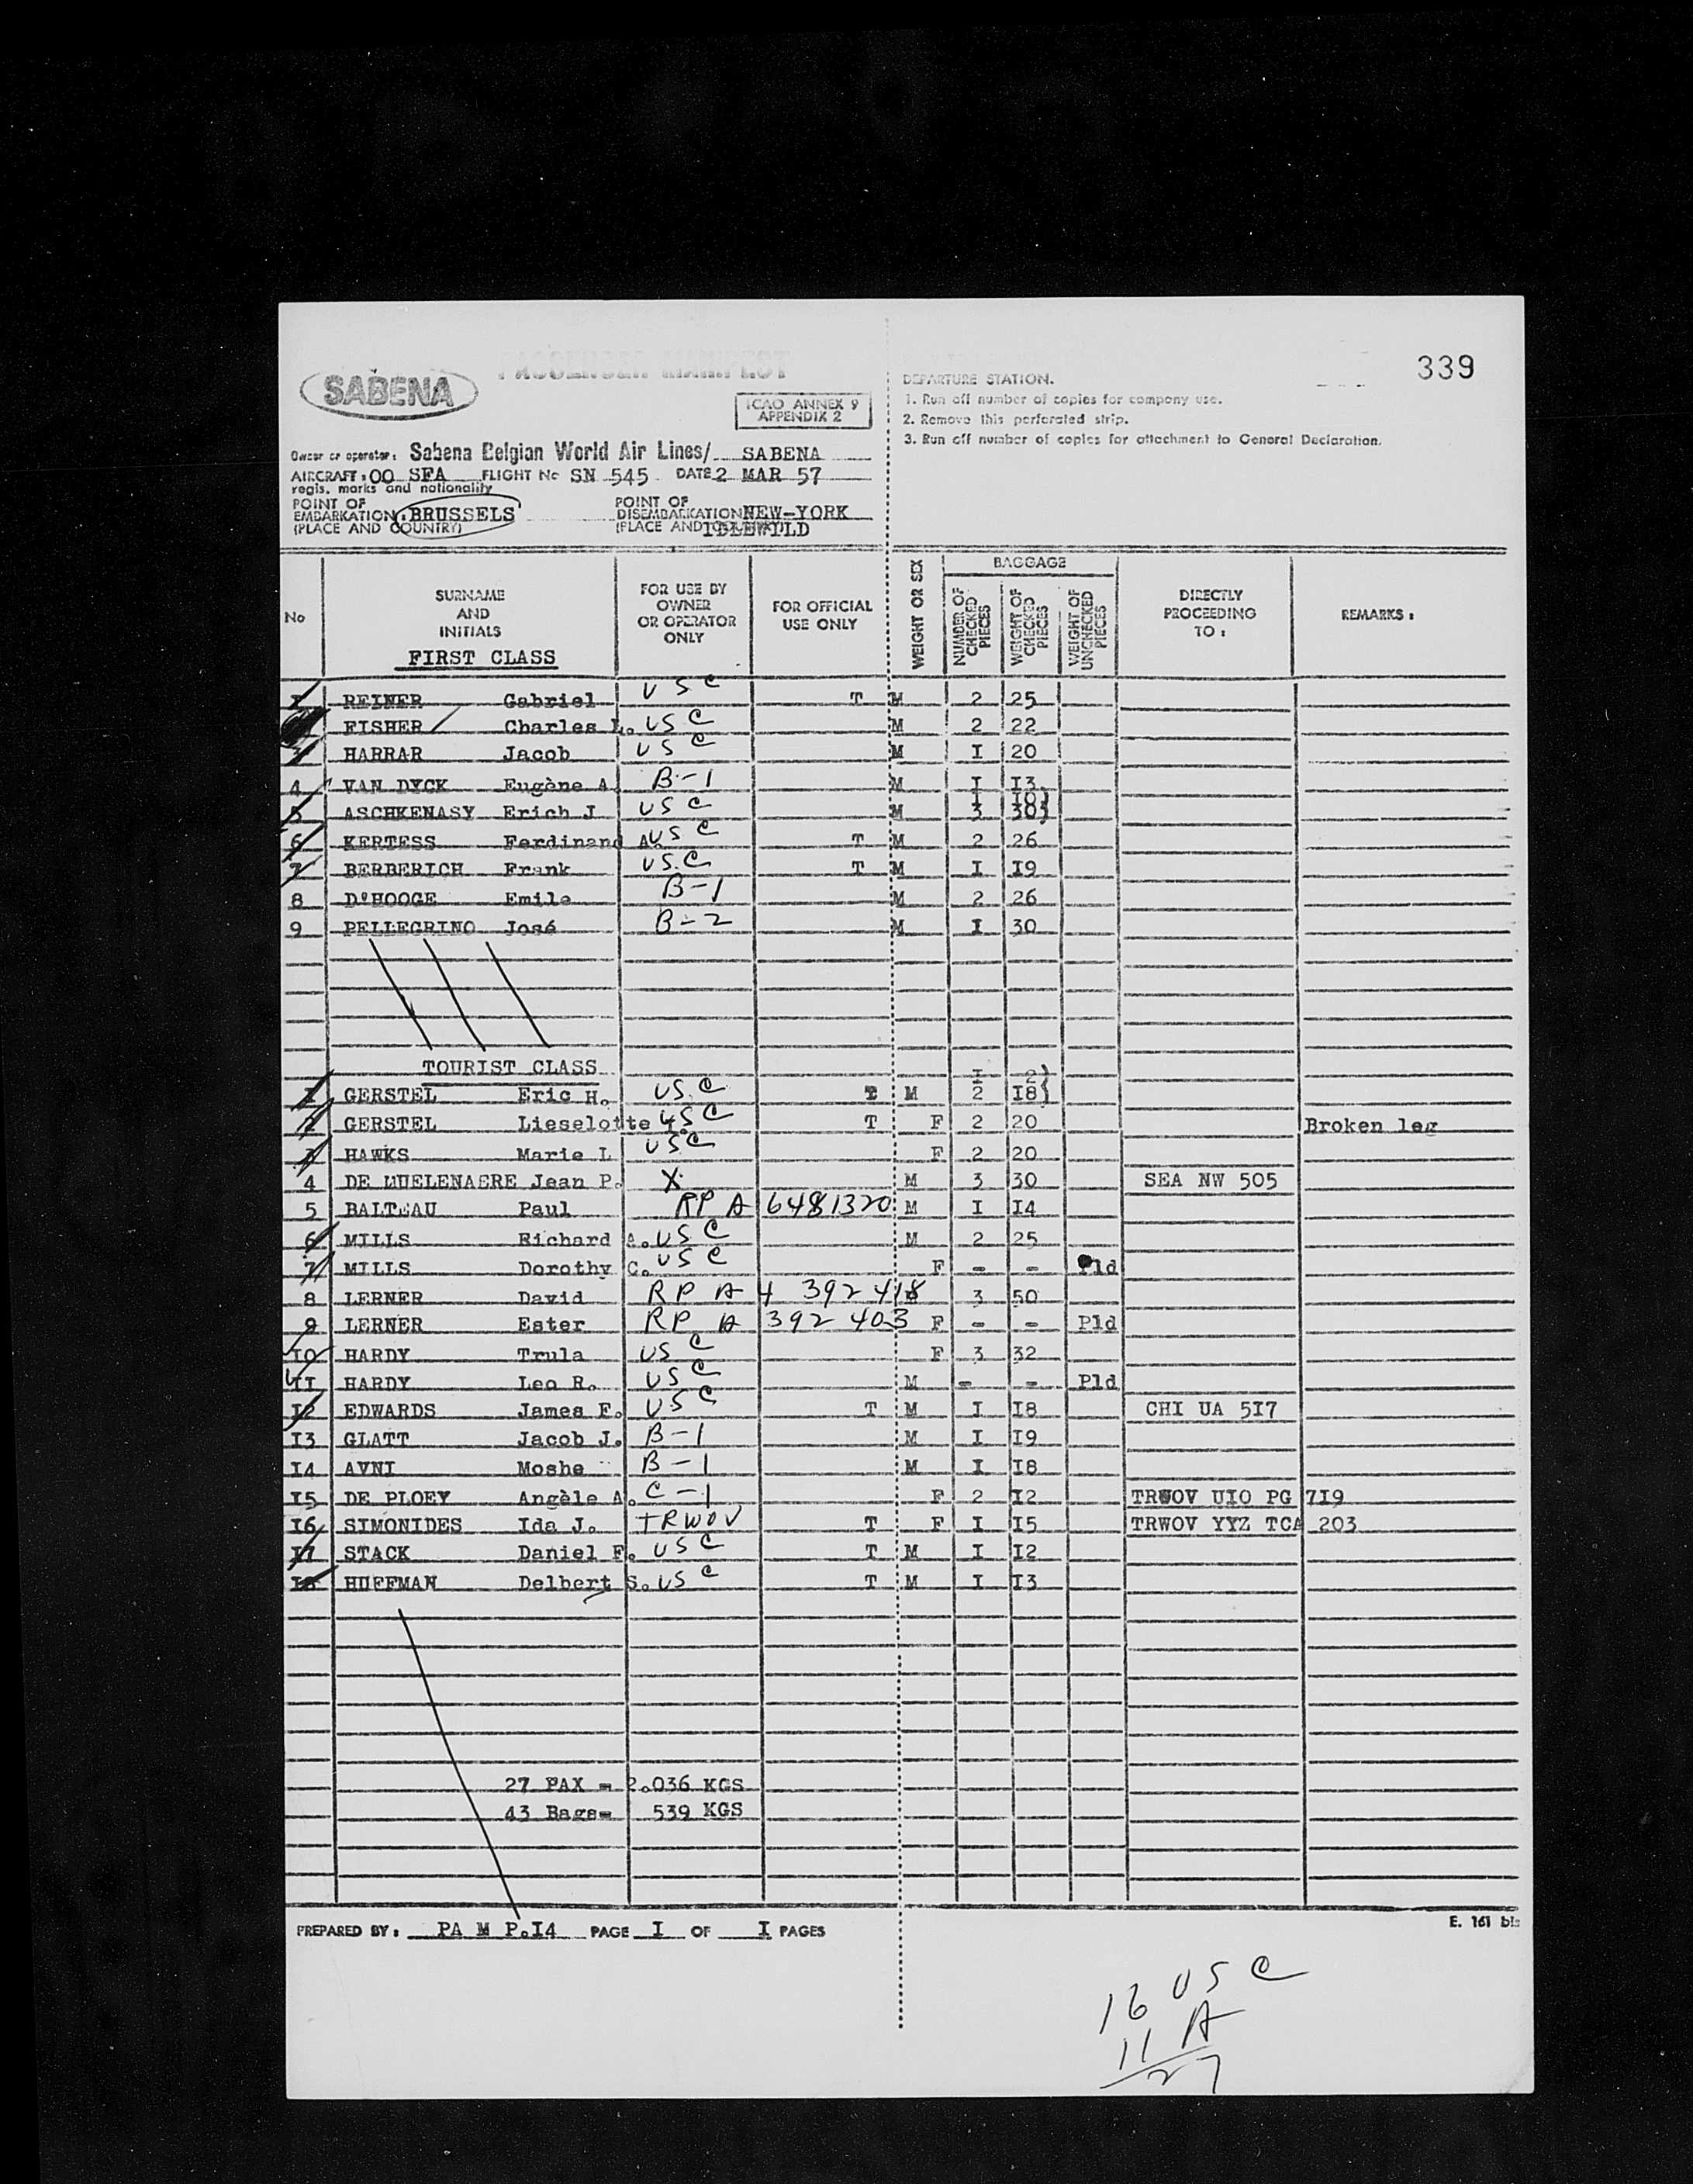 339
PASSENGER MANIFEST
SABENA
ICAO ANNEX 9
APPENDIX 2
DEPARTURE STATION.
1. Run off number of copies for company use.
2. Remove this perforated strip.
3. Run off number of copies for attachment to General Declaration.
Owner or operator: Sabena Belgian World Air Lines/ SABENA
AIRCRAFT: OO SFA FLIGHT No SN 545 DATE 2 MAR 57
regis. marks and nationality
POINT OF EMBARKATION: BRUSSELS
(PLACE AND COUNTRY)
POINT OF DISEMBARKATION NEW-YORK
(PLACE AND IDLEWILD
No
SURNAME AND INITIALS
FOR USE BY OWNER OR OPERATOR ONLY
FOR OFFICIAL USE ONLY
WEIGHT OR SEX
BAGGAGE
NUMBER OF CHECKED PIECES
WEIGHT OF CHECKED PIECES
WEIGHT OF UNCHECKED PIECES
DIRECTLY PROCEEDING TO :
REMARKS :
FIRST CLASS
REINER Gabriel USC T M 2 25
FISHER Charles L. USC M 2 22
3 HARRAR Jacob USC M I 20
4 VAN DYCK Eugène A. B-1 M I I3
I I0}
5 ASCHKENASY Erich J USC M 3 30}
6 KERTESS Ferdinand A. USC T M 2 26
7 BERBERICH Frank USC T M I I9
8 D'HOOGE Emile B-1 M 2 26
9 PELLEGRINO José B-2 M I 30
TOURIST CLASS
I 2}
1 GERSTEL Eric H. USC T M 2 I8}
2 GERSTEL Lieselotte USC T F 2 20 Broken leg
HAWKS Marie L USC F 2 20
4 DE MUELENAERE Jean P. X M 3 30 SEA NW 505
5 BALTEAU Paul RP A 6481320 M I I4
6 MILLS Richard A. USC M 2 25
7 MILLS Dorothy C. USC F - - Pld
8 LERNER David RP A 4 392 418 3 50
9 LERNER Ester RP A 392 403 F - - Pld
I0 HARDY Trula USC F 3 32
II HARDY Leo R. USC M - - Pld
I2 EDWARDS James F. USC T M I I8 CHI UA 5I7
I3 GLATT Jacob J. B-1 M I I9
I4 AVNI Moshe B-1 M I I8
I5 DE PLOEY Angèle A. C-1 F 2 I2 TRWOV UIO PG 7I9
I6 SIMONIDES Ida J. TRWOV T F I I5 TRWOV YYZ TCA 203
I7 STACK Daniel F. USC T M I I2
I8 HUFFMAN Delbert S. USC T M I I3
27 PAX = 2.036 KGS
43 Bags= 539 KGS
PREPARED BY: PA M P.I4 PAGE I OF I PAGES
E. 161 bis
16 USC
11 A
27